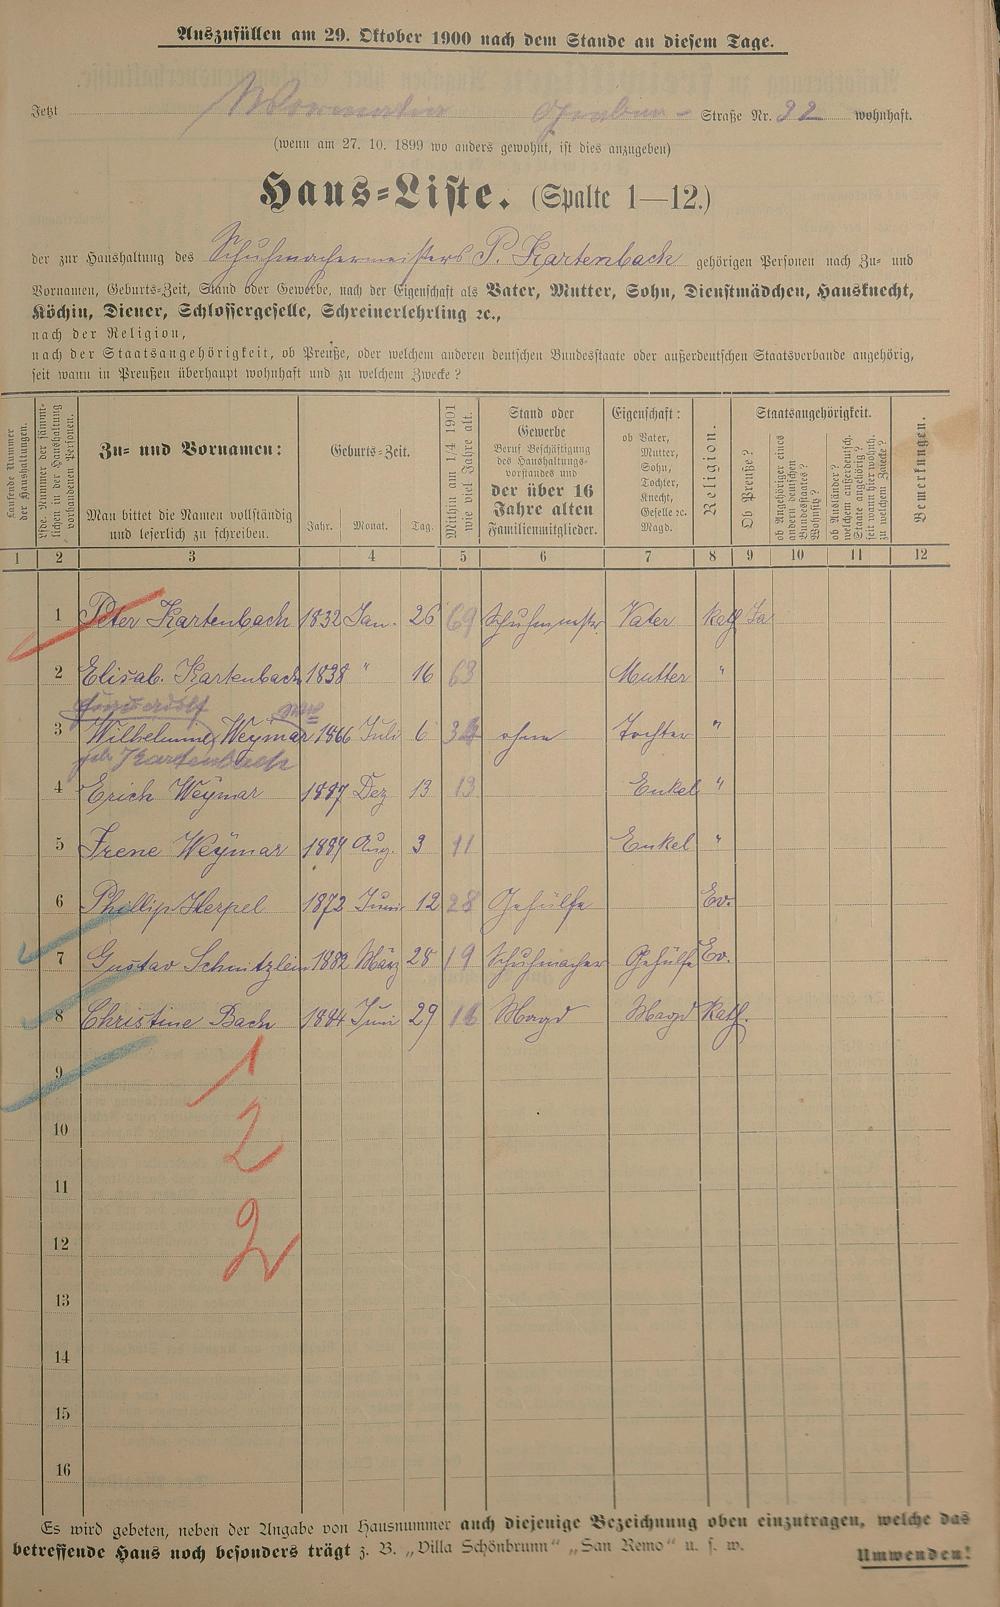 Auszufüllen am 29. Oktober 1900 nach dem Stande an diesem Tage.
Jetzt Wormatia Graben- Straße Nr. 22 wohnhaft.
(wenn am 27. 10. 1899 wo anders gewohnt, ist dies anzugeben)
Haus-Liste. (Spalte 1—12.)
der zur Haushaltung des Schuhmachermeisters P. Kartenbach gehörigen Personen nach Zu- und
Vornamen, Geburts-Zeit, Stand oder Gewerbe, nach der Eigenschaft als Vater, Mutter, Sohn, Dienstmädchen, Hausknecht,
Köchin, Diener, Schlossergeselle, Schreinerlehrling ꝛc.,
nach der Religion,
nach der Staatsangehörigkeit, ob Preuße, oder welchem anderen deutschen Bundesstaate oder außerdeutschen Staatsverbande angehörig,
seit wann in Preußen überhaupt wohnhaft und zu welchem Zwecke?
Laufende Nummer
der Haushaltungen.
Lfde. Nummer der sämmt-
lichen in der Haushaltung
vorhandenen Personen.
Zu- und Vornamen:
Man bittet die Namen vollständig
und leserlich zu schreiben.
Geburts-Zeit.
Jahr. Monat. Tag.
Mithin am 1/4 1901
wie viel Jahre alt.
Stand oder
Gewerbe
Beruf Beschäftigung
des Haushaltungs-
vorstandes und
der über 16
Jahre alten
Familienmitglieder.
Eigenschaft:
ob Vater,
Mutter,
Sohn,
Tochter,
Knecht,
Geselle ꝛc.
Magd.
Religion.
Staatsangehörigkeit.
Ob Preuße?
ob Angehöriger eines
andern deutschen
Bundesstaates?
Wohnsitz?
ob Ausländer?
welchem außerdeutsch.
Staate angehörig?
seit wann hier wohnh.
zu welchem Zwecke?
Bemerkungen.
1 2 3 4 5 6 7 8 9 10 11 12
1 Peter Kartenbach 1832 Jan. 26 69 Schuhmmstr. Vater kath Ja
2 Elisab. Kartenbach 1838 " 16 63 Mutter "
3 Wilhelmine Weymar 1866 Juli 6 34 ohne Tochter "
geb Kartenbach
4 Erich Weymar 1887 Dez 13 13 Enkel "
5 Irene Weymar 1889 Aug. 3 11 Enkel "
6 Phillip Herpel 1872 Juni 12 28 Gehülfe Ev.
7 Gustav Schnitzlein 1882 März 28 19 Schuhmacher Gehülfe Ev.
8 Christine Bach 1884 Juni 29 16 Magd Magd Kath.
9
1
10
2
11
12
2
13
14
15
16
Es wird gebeten, neben der Angabe von Hausnummer auch diejenige Bezeichnung oben einzutragen, welche das
betreffende Haus noch besonders trägt z. B. „Villa Schönbrunn" „San Remo" u. s. w.
Umwenden!